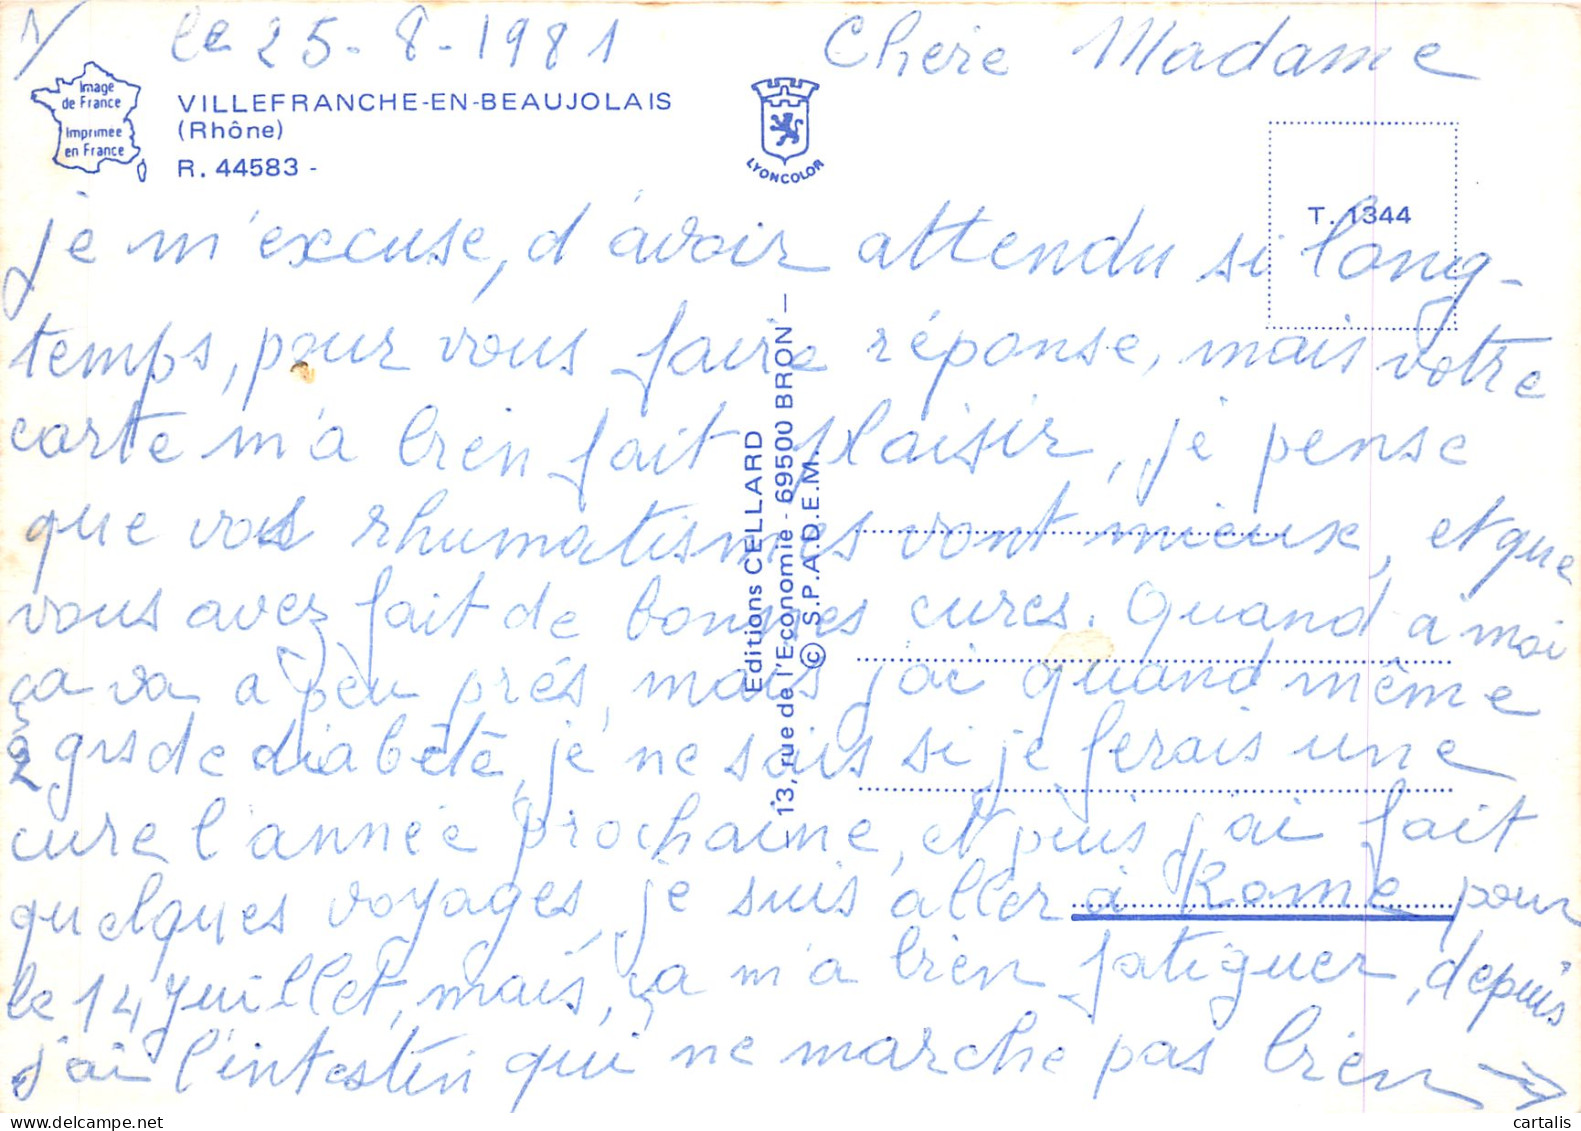 1/ le 25-8-1981 Chère Madame
Image
de France
Imprimée
en France
VILLEFRANCHE-EN-BEAUJOLAIS
(Rhône)
R. 44583 -
LYONCOLOR
T. 1344
je m'excuse, d'avoir attendu si long-
temps, pour vous faire réponse, mais votre
carte m'a bien fait plaisir, je pense
que vos rhumatismes vont mieux, et que
vous avez fait de bonnes cures. Quand à moi
ça va a peu près, mais j'ai quand même
2 grs de diabète, je ne sais si je ferais une
cure l'année prochaine, et puis j'ai fait
quelques voyages, je suis aller à Rome pour
le 14 Juillet, mais, ça m'a bien fatiguer, depuis
j'ai l'intestin qui ne marche pas bien →
Editions CELLARD
13, rue de l'Economie - 69500 BRON —
© S.P.A.D.E.M.
cartalis